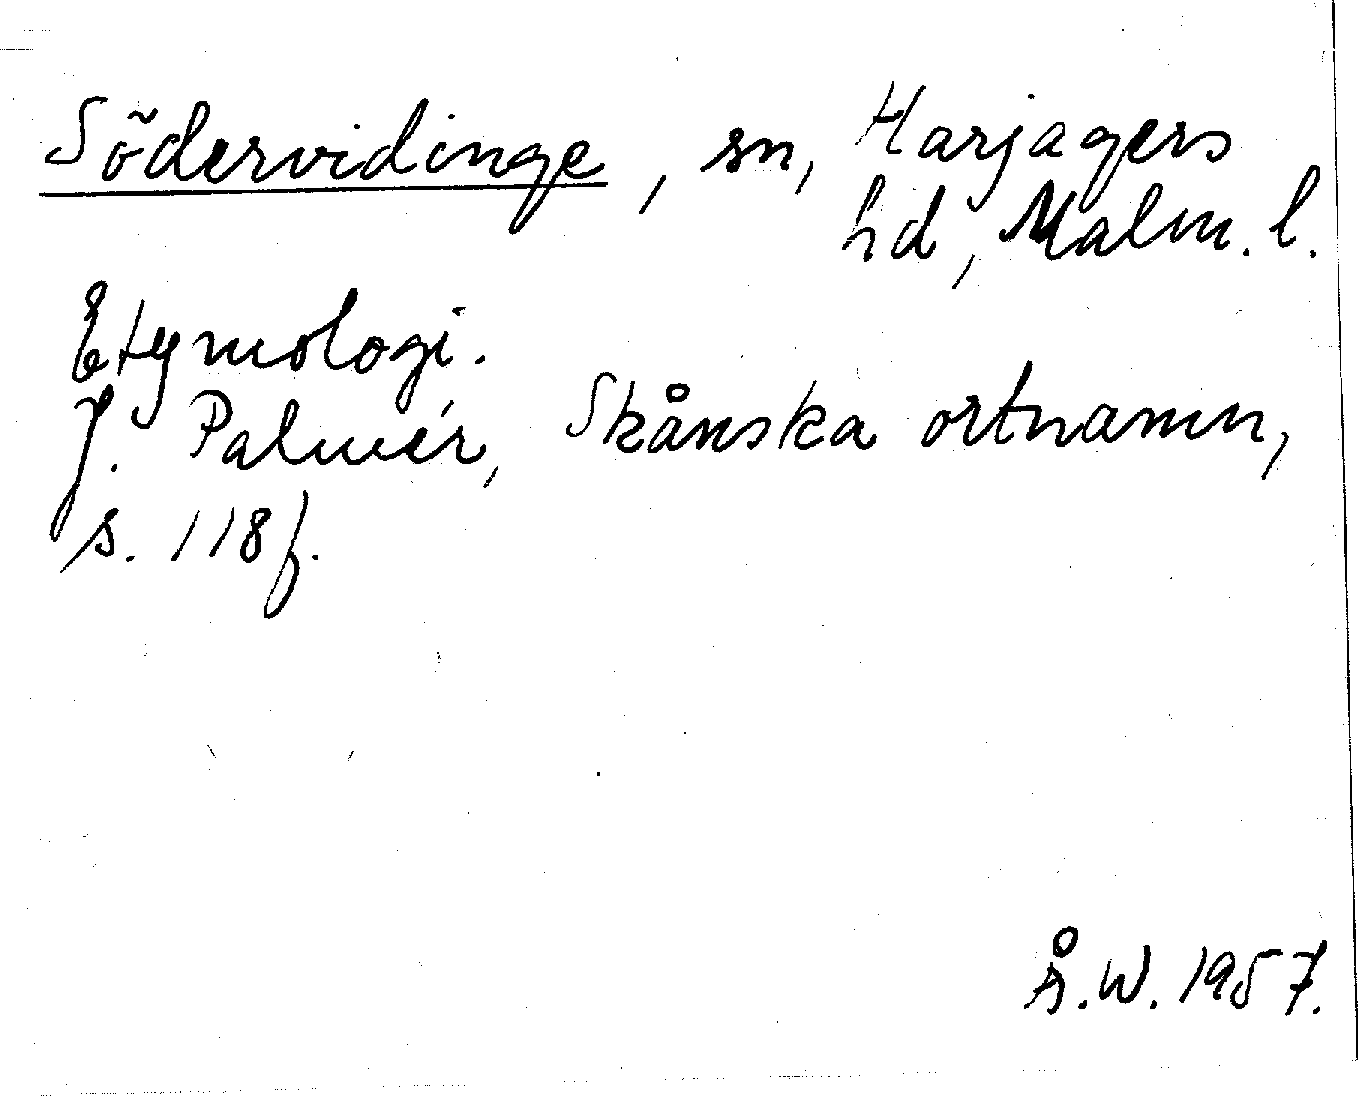 Södervidinge, sn, Harjagers
hd, Malm. l.
Etymologi.
J. Palmér, Skånska ortnamn,
s. 118 f.
Å.W. 1957.